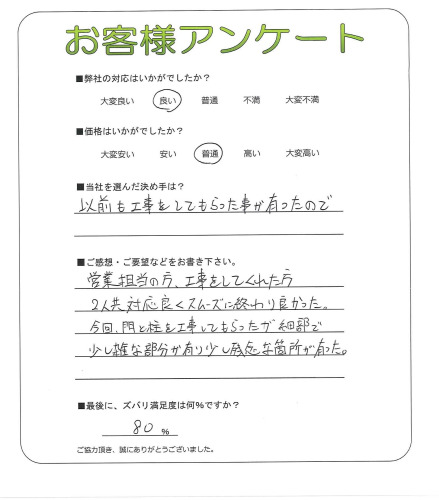 お客様アンケート
■弊社の対応はいかがでしたか？
大変良い 良い 普通 不満 大変不満
■価格はいかがでしたか？
大変安い 安い 普通 高い 大変高い
■当社を選んだ決め手は？
以前も工事をしてもらった事が有ったので
■ご感想・ご要望などをお書き下さい。
営業担当の方、工事をしてくれた方
2人共対応良くスムーズに終わり良かった。
今回、門と柱を工事してもらったが細部で
少し雑な部分が有り少し残念な箇所が有った。
■最後に、ズバリ満足度は何％ですか？
80 ％
ご協力頂き、誠にありがとうございました。